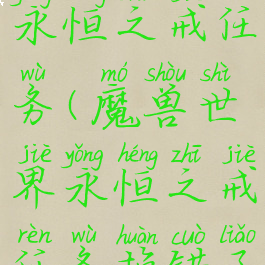 永恒之戒任
wù mó shòu shì
务(魔兽世
jiè yǒng héng zhī jiè
界永恒之戒
rèn wù huàn cuò liǎo
任务换错了